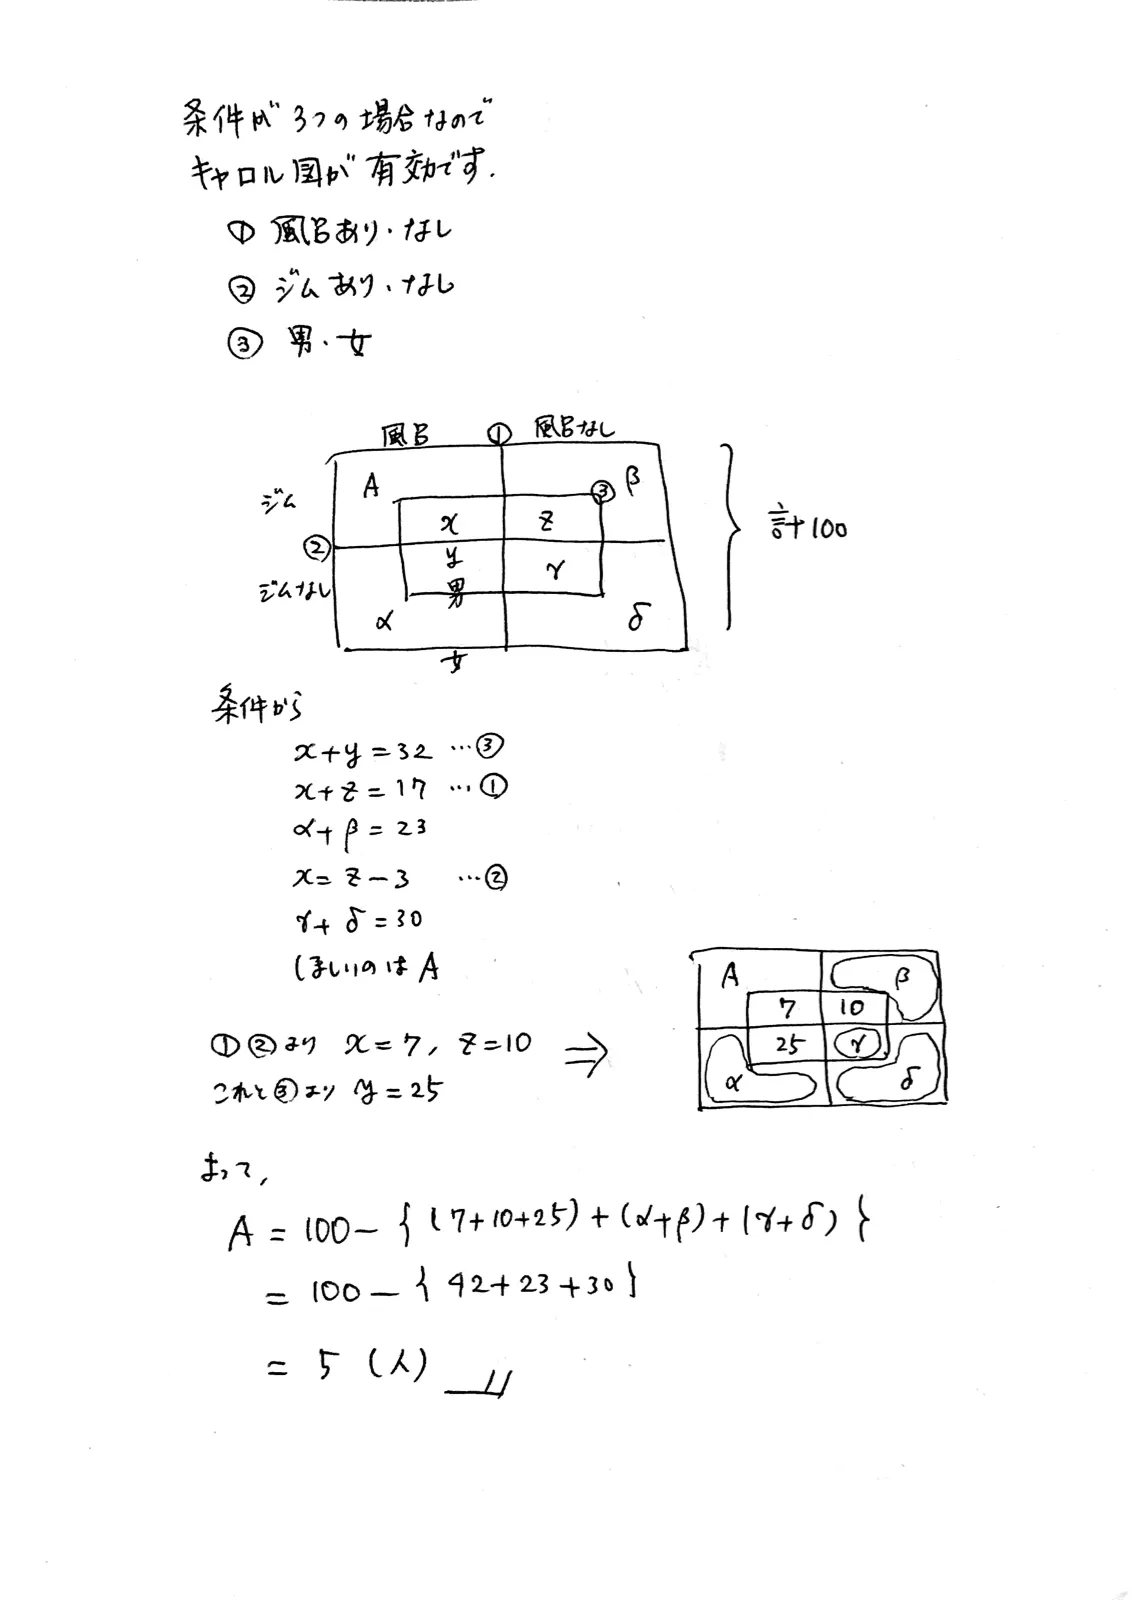 条件が3つの場合なので
キャロル図が有効です.
① 風呂あり・なし
② ジムあり・なし
③ 男・女
風呂 ① 風呂なし
ジム A β
③
x z
② 計100
y γ
ジムなし 男
α δ
女
条件から
x+y=32 …③
x+z=17 …①
α+β=23
x=z-3 …②
γ+δ=30
ほしいのは A
A β
7 10
25 γ
α δ
①②より x=7, z=10 ⇒
これと③より y=25
よって,
A = 100-{(7+10+25)+(α+β)+(γ+δ)}
= 100-{42+23+30}
= 5 (人)